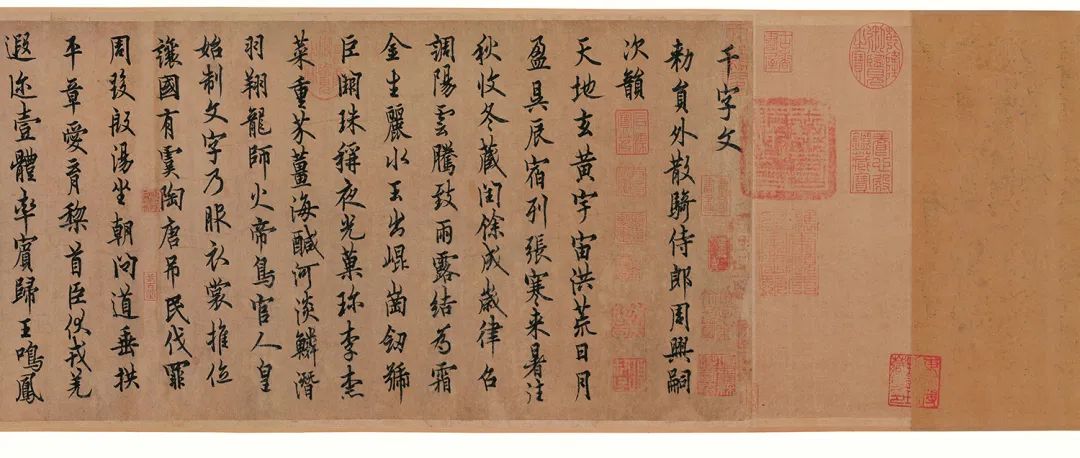 千字文
勑員外散騎侍郎周興嗣
次韻
天地玄黃宇宙洪荒日月
盈昃辰宿列張寒来暑往
秋收冬藏閏餘成歲律召
調陽雲騰致雨露結為霜
金生麗水玉出崐崗劒號
巨闕珠稱夜光菓珍李柰
菜重芥薑海醎河淡鱗潛
羽翔龍師火帝鳥官人皇
始制文字乃服衣裳推位
讓國有虞陶唐吊民伐罪
周發殷湯坐朝問道垂拱
平章愛育黎首臣伏戎羌
遐迩壹體率賓歸王鳴鳳